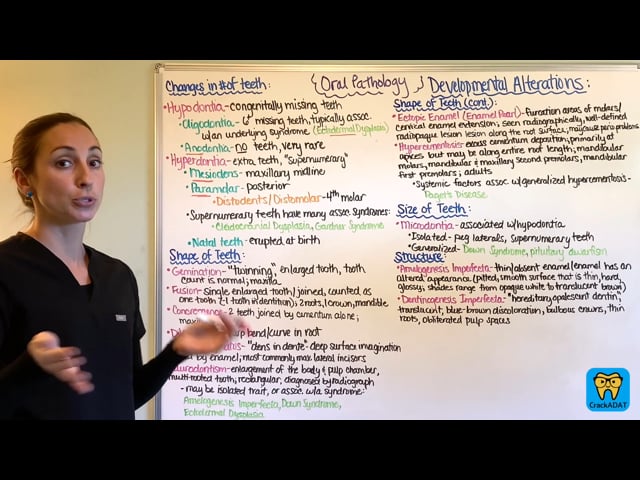 {Oral Pathology} Developmental Alterations:
Changes in # of teeth:
•Hypodontia- congenitally missing teeth
•Oligodontia- 6+ missing teeth, typically assoc.
w/an underlying syndrome (Ectodermal Dysplasia)
•Anodontia- no teeth, very rare
•Hyperdontia- extra teeth, "Supernumerary"
•Mesiodens- maxillary midline
•Paramolar- posterior
•Distodents/Distomolar- 4th molar
•Supernumerary teeth have many assoc. syndromes:
Cleidocranial Dysplasia, Gardner Syndrome
•Natal teeth- erupted at birth
Shape of Teeth:
•Gemination- "twinning", enlarged tooth, tooth
count is normal; maxilla
•Fusion- Single enlarged tooth/joined, counted as
one tooth (-1 tooth in dentition); 2 roots, 1 crown, mandible
•Concrescence- 2 teeth joined by cementum alone;
bend/curve in root
"dens in dente"- deep surface invagination
by enamel; most commonly max lateral incisors
enlargement of the body & pulp chamber,
multi-rooted teeth, rectangular, diagnosed by radiograph
- may be isolated trait, or assoc. w/a syndrome:
Amelogenesis Imperfecta, Down Syndrome,
Ectodermal Dysplasia
Shape of Teeth (cont.):
•Ectopic Enamel (Enamel Pearl)- Furcation areas of molars/
cervical enamel extension, seen radiographically, well-defined
radiopaque lesion along the root surface, may cause perio problems
•Hypercementosis- excess cementum deposition, primarily at
apices but may be along entire root length, mandibular
molars, mandibular & maxillary second premolars, mandibular
first premolars; adults
•Systemic factors assoc. w/generalized hypercementosis-
Paget's Disease
Size of Teeth:
•Microdontia- associated w/hypodontia
•Isolated- peg laterals, supernumerary teeth
•Generalized- Down Syndrome, pituitary dwarfism
Structure:
•Amelogenesis Imperfecta- thin/absent enamel (enamel has an
altered appearance (pitted, smooth surface that is thin, hard,
glossy; shades range from opaque white to translucent brown)
•Dentinogenesis Imperfecta- "hereditary opalescent dentin",
translucent, blue-brown discoloration, bulbous crowns, thin
roots, obliterated pulp spaces
CrackADAT